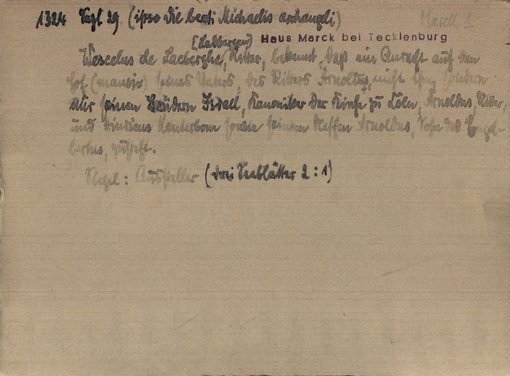 1324 Sept 29. (ipso die beati Michaelis archangeli) Marck 1
[Ladbergen] Haus Marck bei Tecklenburg
Wescelus de Lacberghe, Ritter, bekennt, daß ein Anrecht auf den
Hof (mansio) seines Vaters, des Ritters Arnoldus, nicht ihm sondern
nur seinen Brüdern Everd, Kanoniker der Kirche zu Cöln, Arnoldus, Ritter,
und sowie seinem Neffen Arnoldus, Sohn des Engel-
bertus, zusteht.
Siegel: Aussteller (drei Seeblätter 2:1)